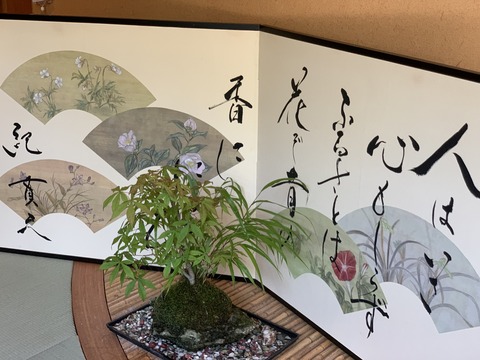 人はいさ
心もしらず
ふるさとは
花ぞ昔の
香に
紀貫之